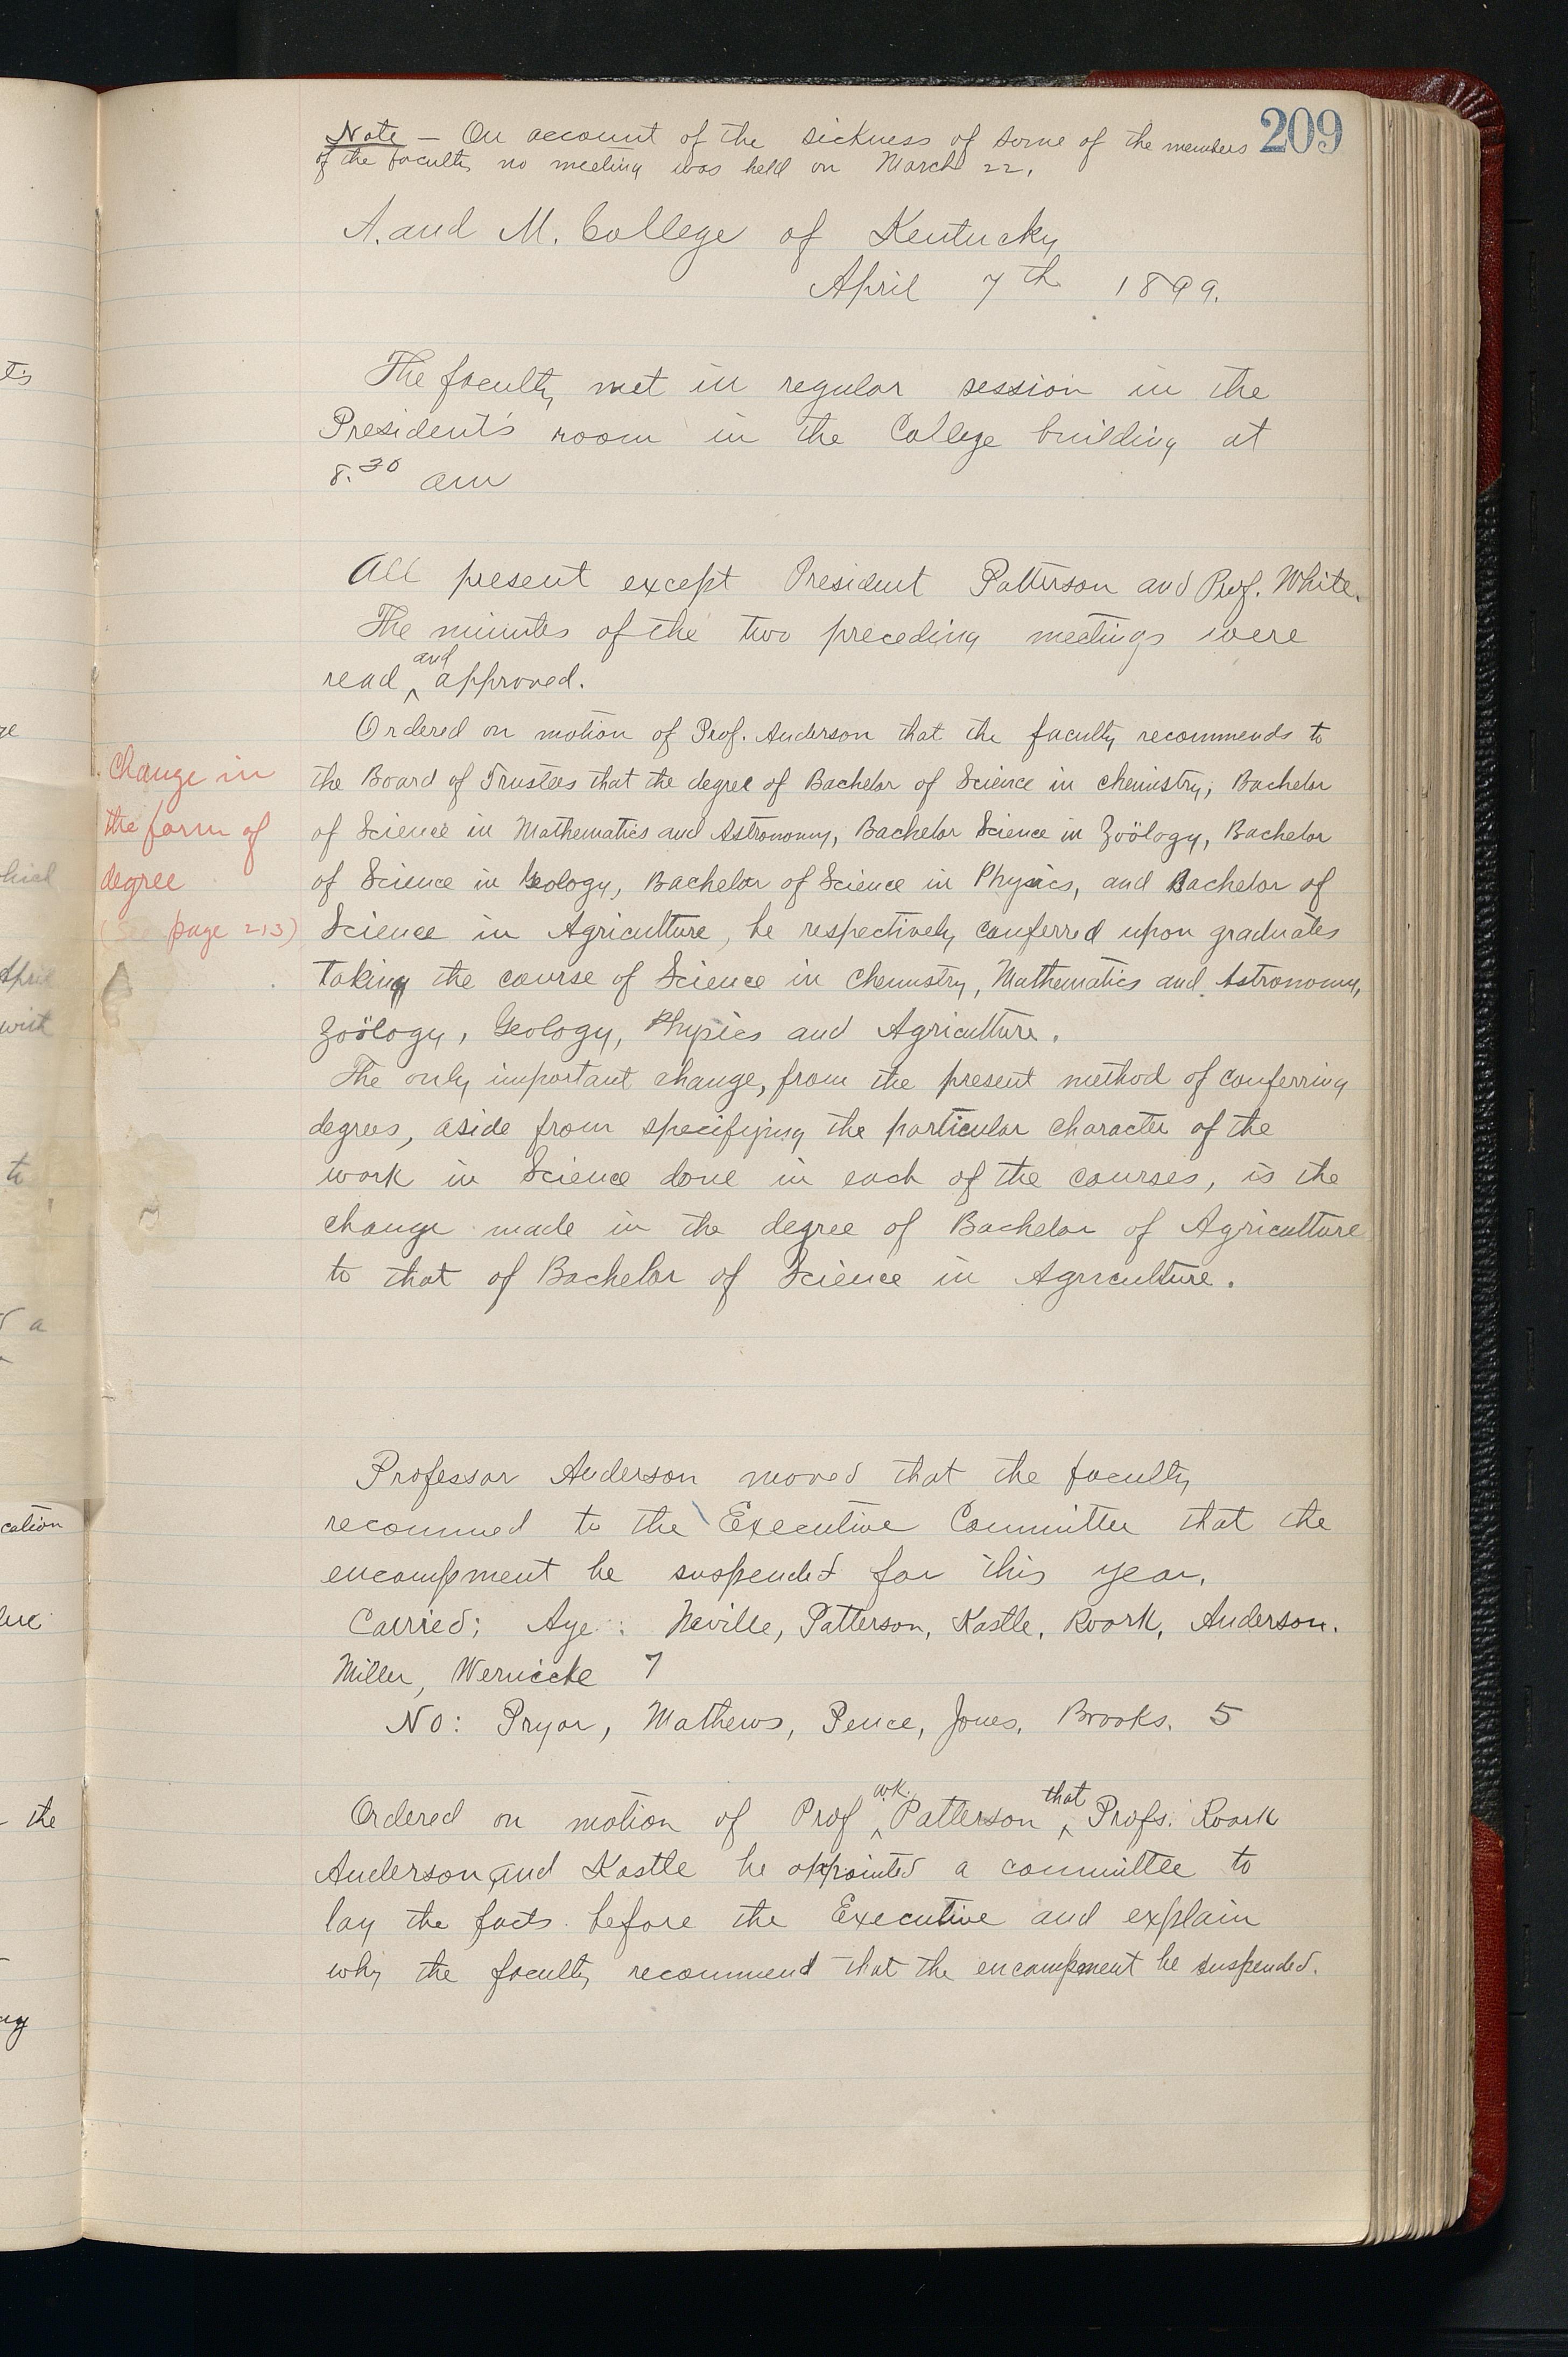 209
Note – On account of the sickness of some of the members
of the faculty no meeting was held on March 22.
A. and M. College of Kentucky
April 7th 1899.
The faculty met in regular session in the
President's room in the College building at
8.30 am
All present except President Patterson and Prof. White.
The minutes of the two preceding meetings were
read ^and approved.
Ordered on motion of Prof. Anderson that the faculty recommends to
the Board of Trustees that the degree of Bachelor of Science in chemistry, Bachelor
of Science in Mathematics and Astronomy, Bachelor Science in Zoölogy, Bachelor
of Science in Geology, Bachelor of Science in Physics, and Bachelor of
Science in Agriculture, be respectively conferred upon graduates
taking the course of Science in Chemistry, Mathematics and Astronomy,
Zoölogy, Geology, Physics and Agriculture.
change in
the form of
degree
(See page 213)
The only important change, from the present method of conferring
degrees, aside from specifying the particular character of the
work in Science done in each of the courses, is the
change made in the degree of Bachelor of Agriculture
to that of Bachelor of Science in Agriculture.
Professor Anderson moved that the faculty
recommed to the Executive Committee that the
encampment be suspended for this year.
Carried; Aye: Neville, Patterson, Kastle, Roark, Anderson.
Miller, Wernicke 7
No: Pryor, Mathews, Pence, Jones, Brooks. 5
Ordered on motion of Prof ^W.K. Patterson ^that Profs. Roark
Anderson, and Kastle be appointed a committee to
lay the facts before the Executive and explain
why the faculty recommend that the encampment be suspended.
cation
the